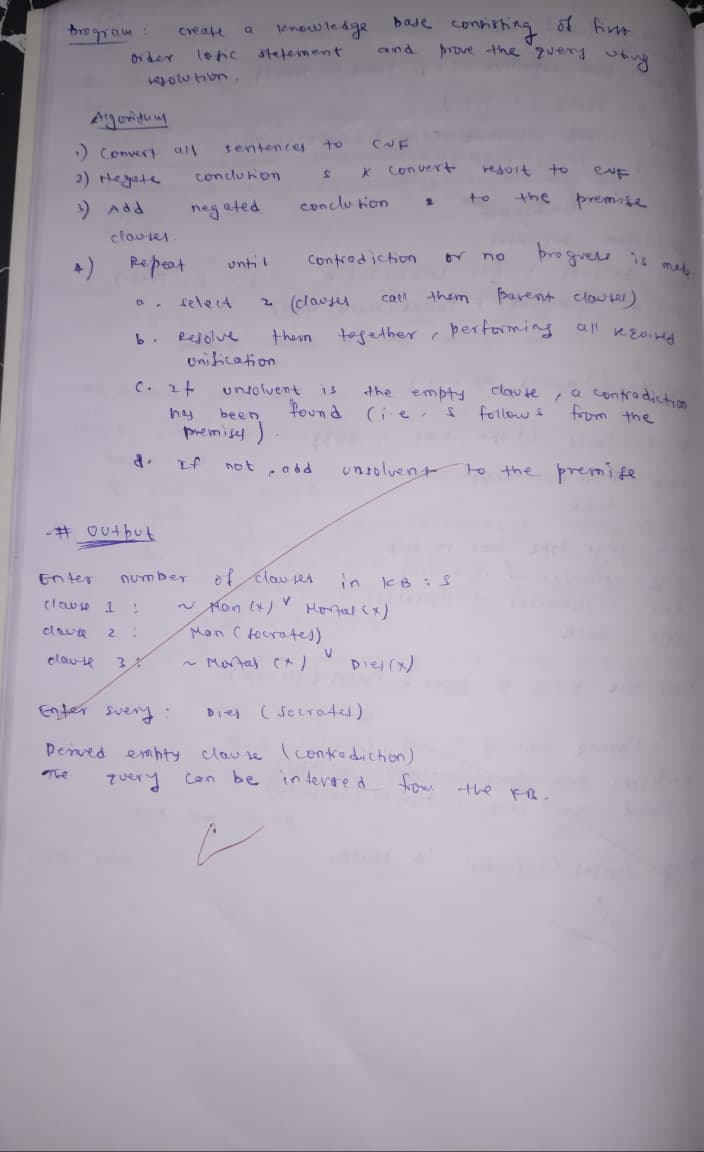 Program : create a knowledge base consisting of first
order logic statement and prove the query using
resolution.
Algorithm
1) Convert all sentences to CNF
2) Negate conclution S & Convert result to CNF
3) Add negated conclution S to the premise
clauses.
4) Repeat until contradiction or no progress is made
a. select 2 (clauses call them parent clauses)
b. Resolve them together, performing all required
unification
C. If unsolvent is the empty clause, a contradiction
has been found (i.e. S follows from the
premises).
d. If not, add unsolvent to the premise
-# Output
Enter number of clauses in KB : 3
clause 1 : ~ Man (x) v Mortal (x)
clause 2 : Man (Socrates)
clause 3 : ~ Mortal (x) v Dies (x)
Enter query : Dies (Socrates)
Derived empty clause (contradiction)
The query can be interred from the KB.